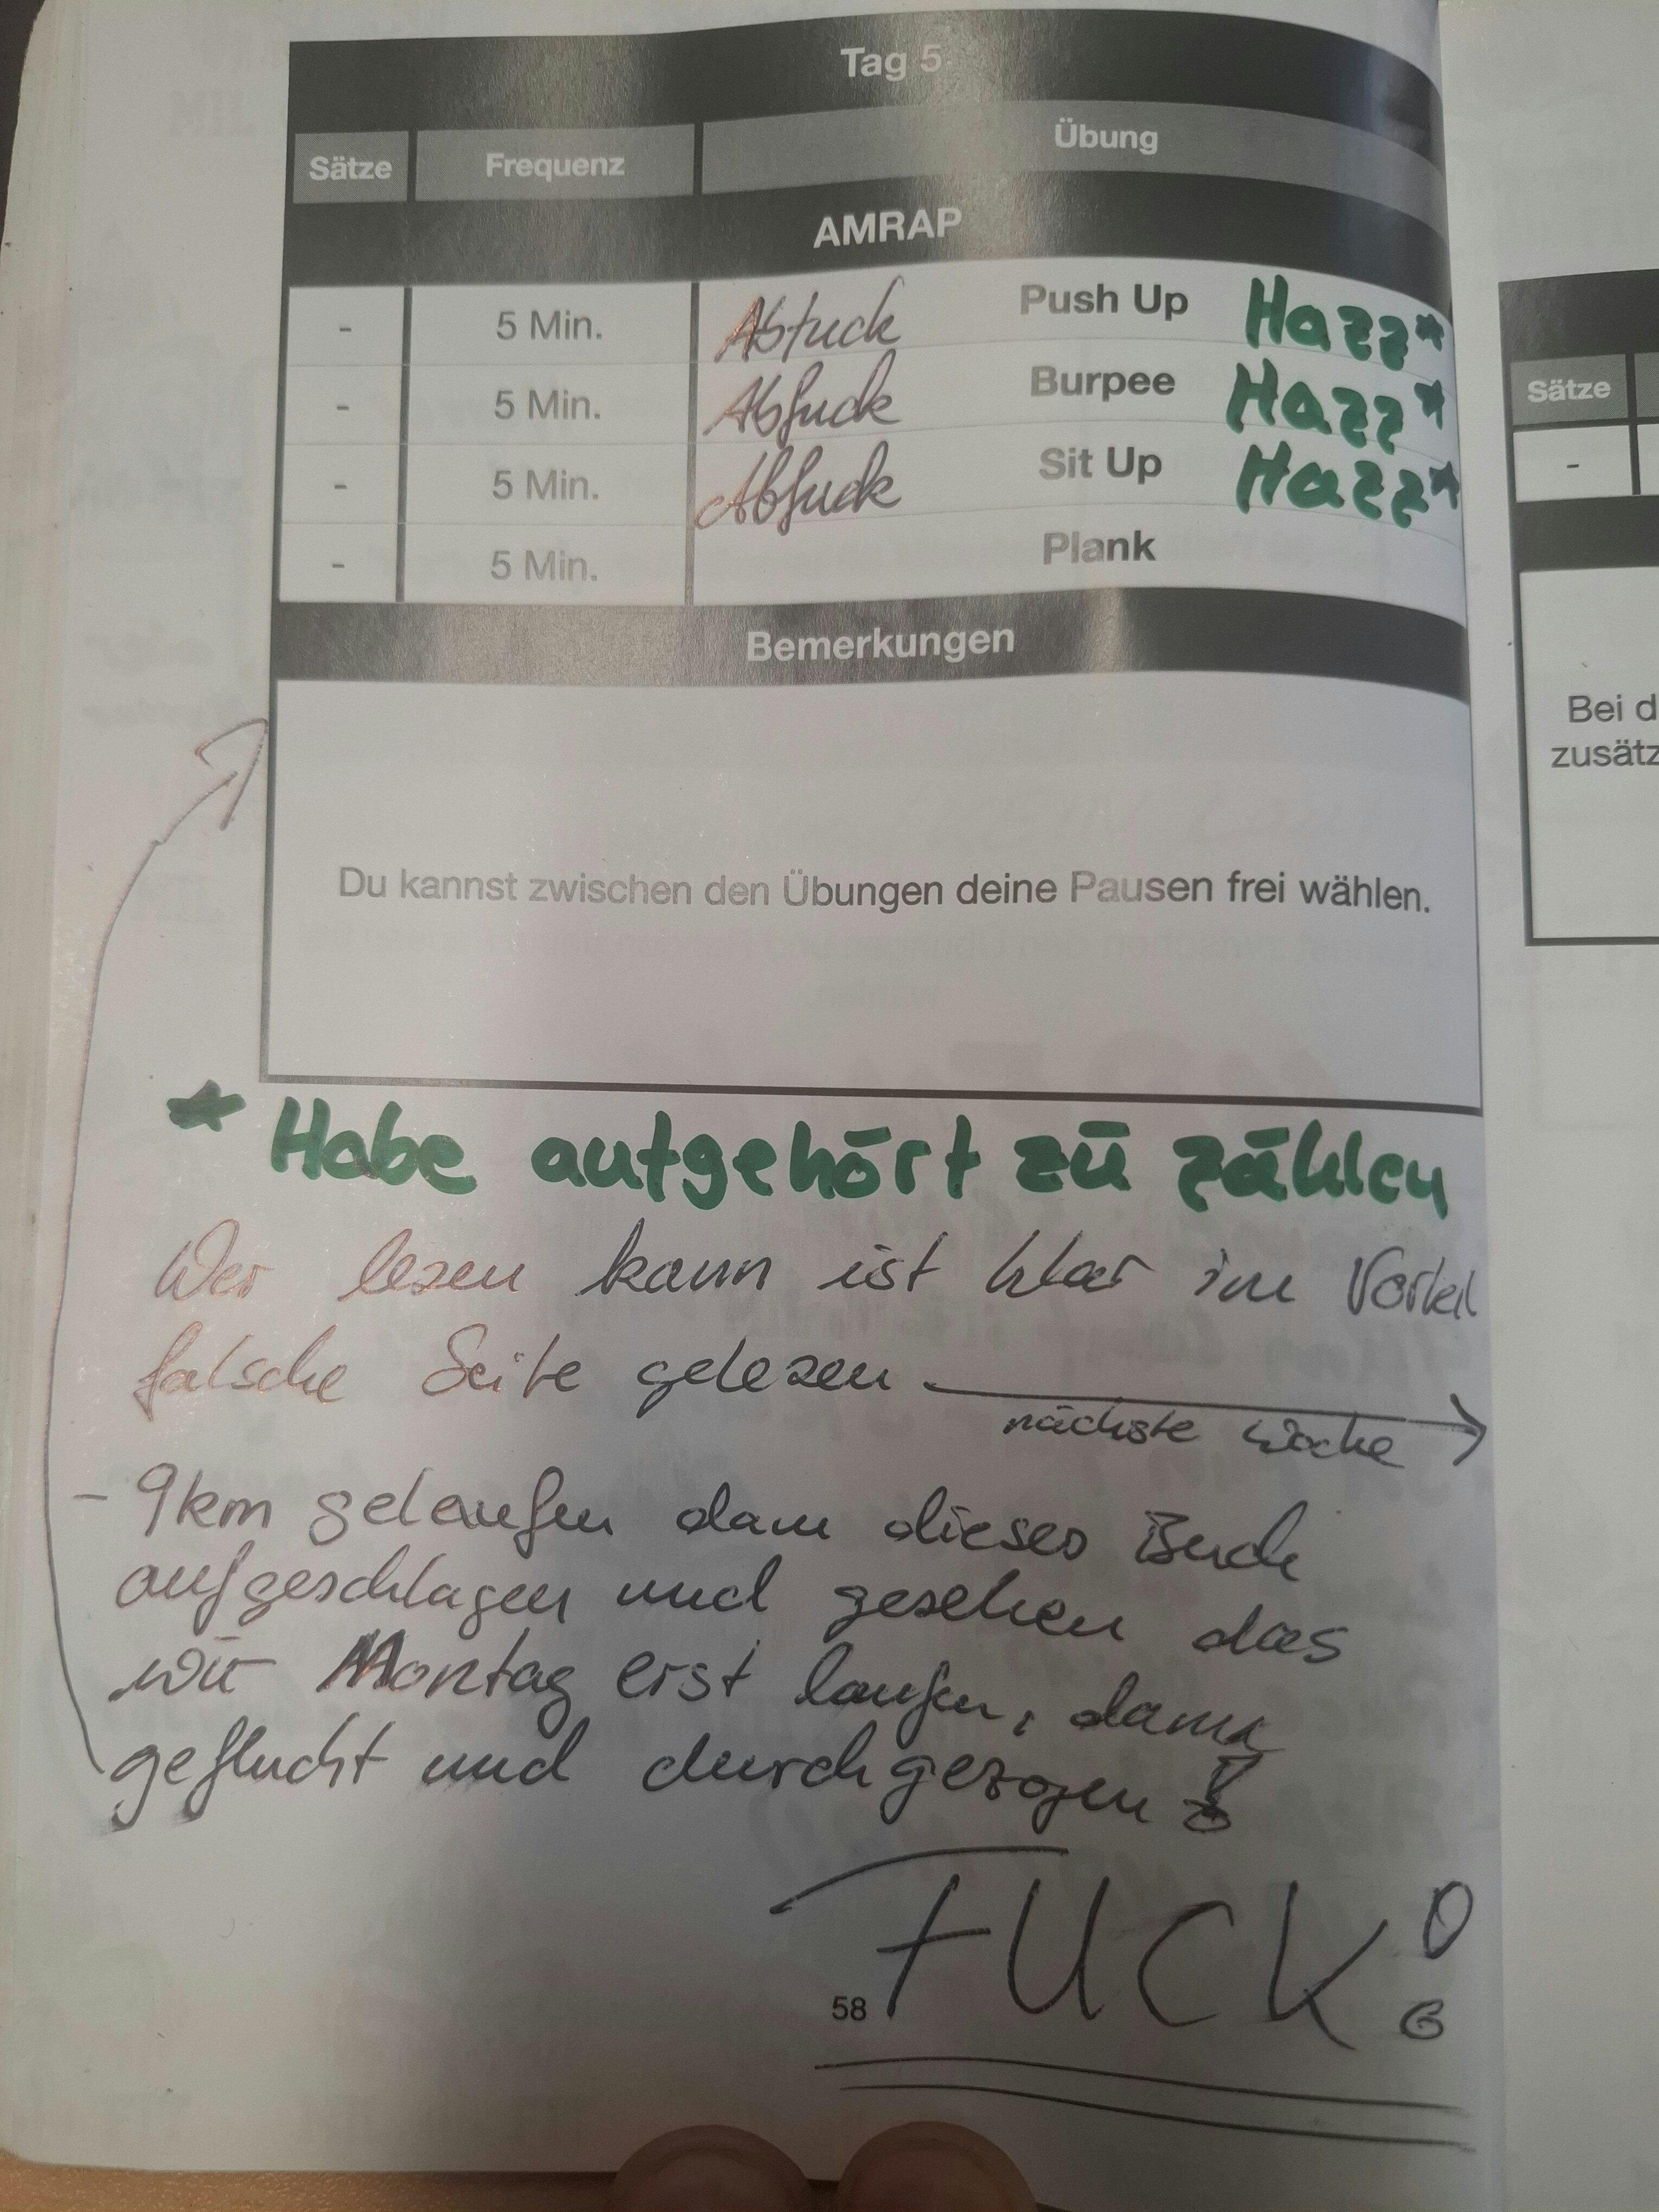 Tag 5
Sätze Frequenz Übung
AMRAP
- 5 Min. Abfuck Push Up Hazz*
- 5 Min. Abfuck Burpee Hazz*
- 5 Min. Abfuck Sit Up Hazz*
- 5 Min. Plank
Bemerkungen
Du kannst zwischen den Übungen deine Pausen frei wählen.
* Habe aufgehört zū zählen
Wer lesen kann ist klar im Vorteil
falsche Seite gelesen
nächste Woche
- 9km gelaufen dann dieses Buch
aufgeschlagen und gesehen das
wir Montag erst laufen, dann
geflucht und durchgezogen!
FUCK!
58
Sätze
-
Bei d
zusätz